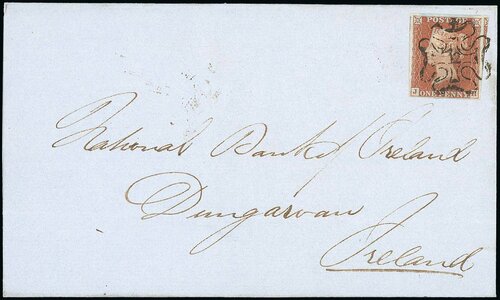 POST
ONE PENNY
J
National Bank of Ireland
Dungarvan
Ireland